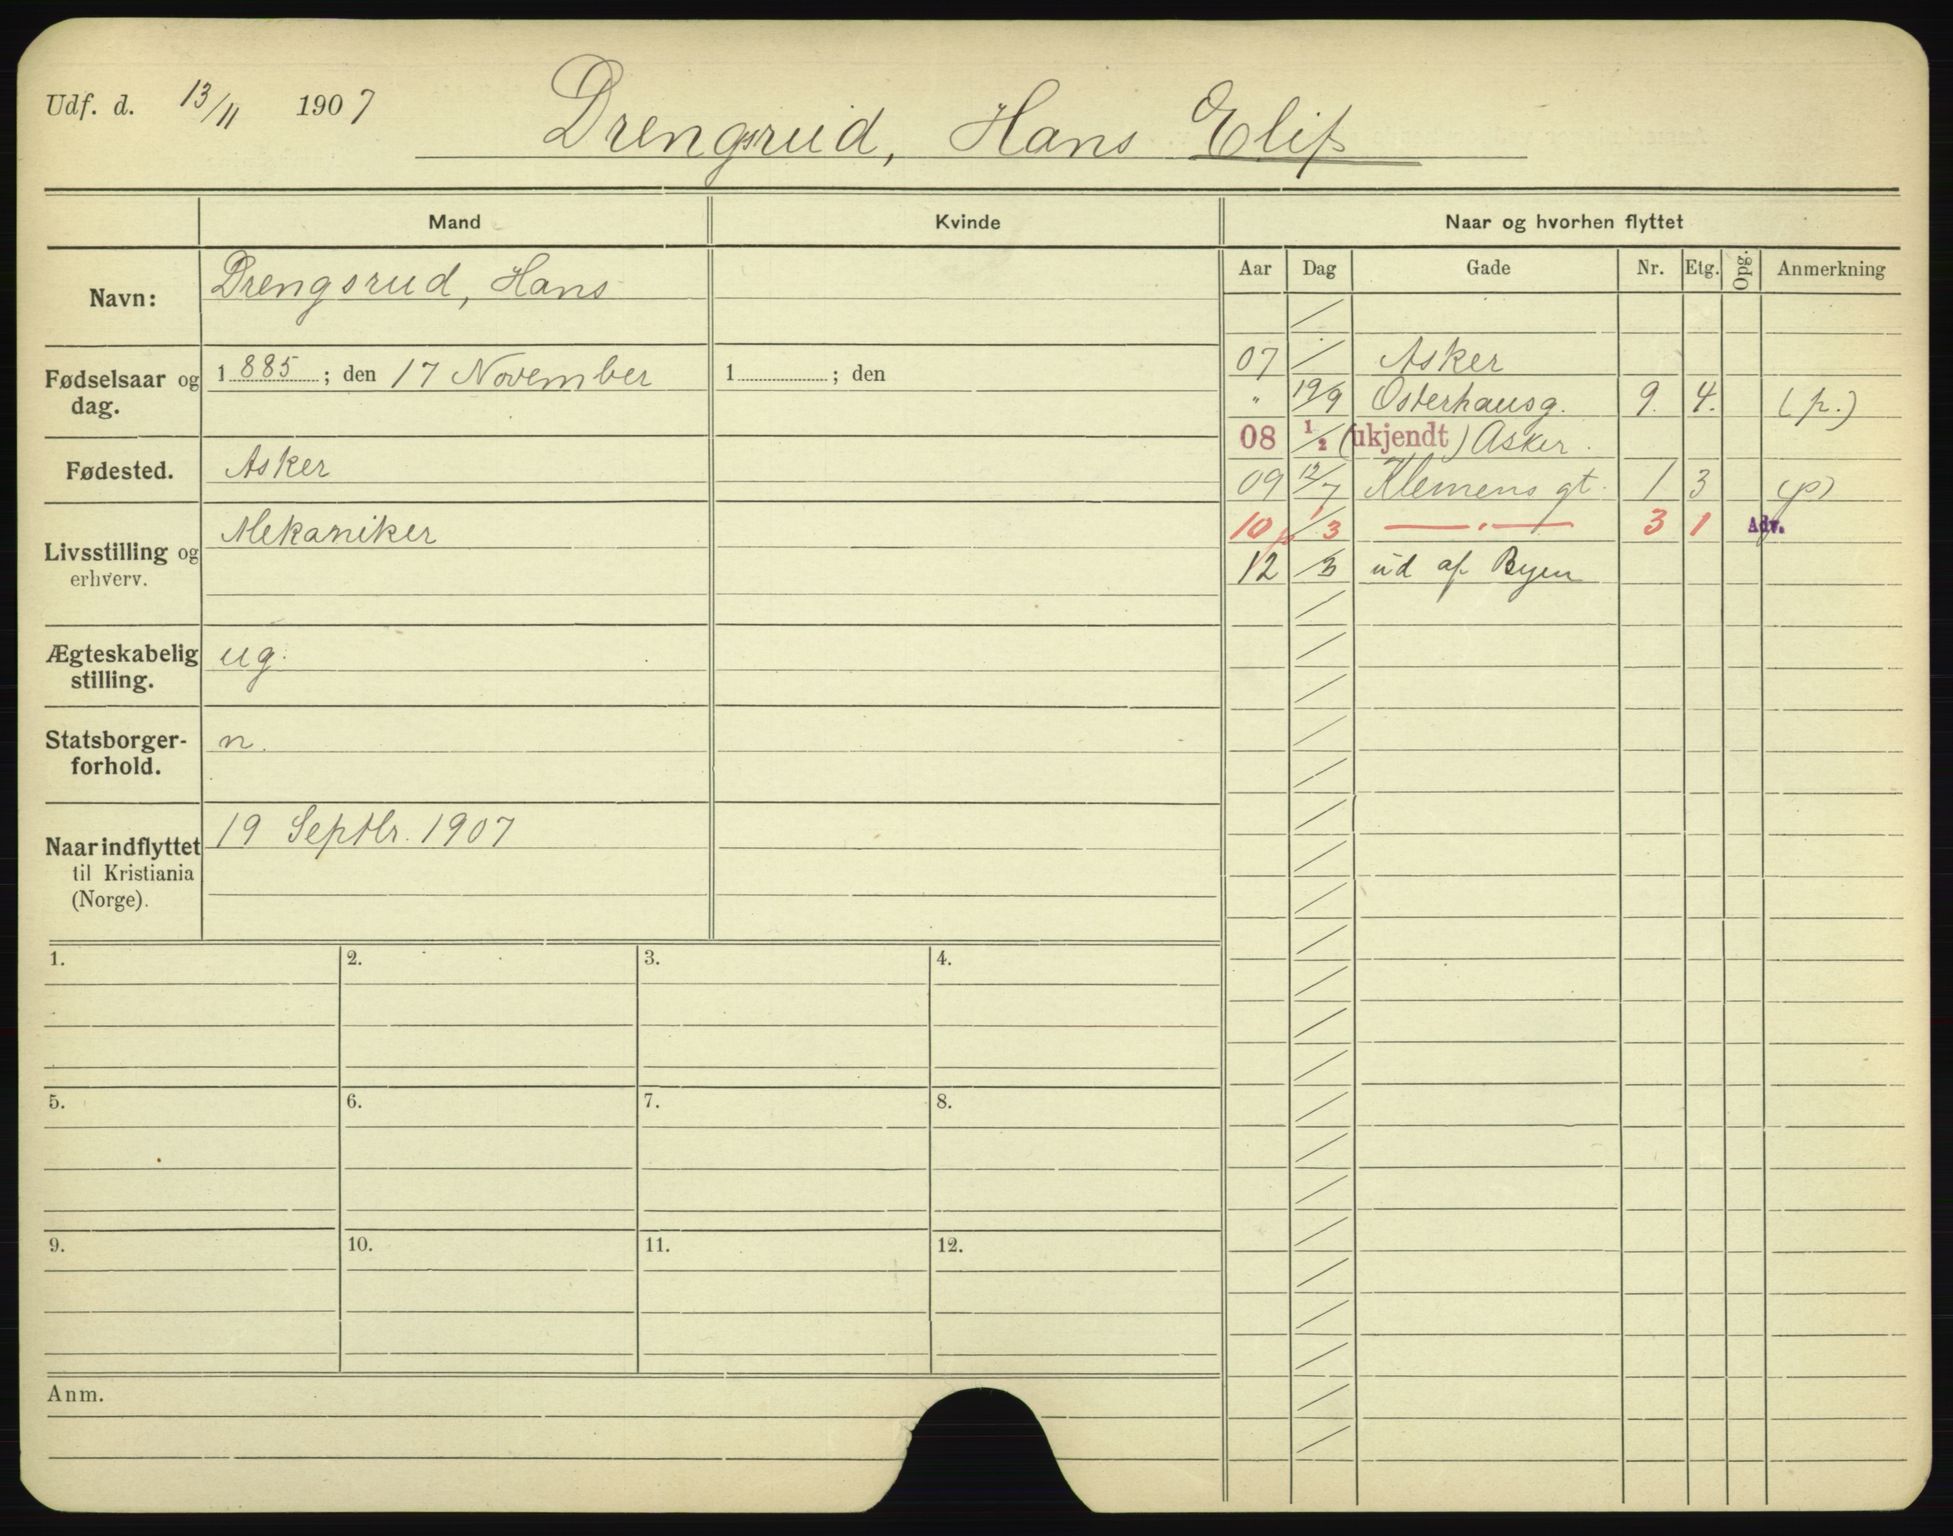 Udf. d. 13/11 1907 Drengsrud, Hans Elif
Mand Kvinde Naar og hvorhen flyttet
Aar Dag Gade Nr. Etg. Opg. Anmerkning
Navn: Drengsrud, Hans
Fødselsaar og dag. 1885; den 17 November 1 ; den
Fødested. Asker
Livsstilling og erhverv. Mekaniker
Ægteskabelig stilling. ug.
Statsborgerforhold. n.
Naar indflyttet til Kristiania (Norge). 19 Septbr. 1907
07 / Asker
" 19/9 Osterhausg. 9. 4. (p.)
08 1/2 (ukjendt) Asker.
09 12/7 Klemens gt. 1 3 (p)
10 p 1/3 —"— 3 1 Adv.
12 /3 ud af Byen
1. 2. 3. 4.
5. 6. 7. 8.
9. 10. 11. 12.
Anm.